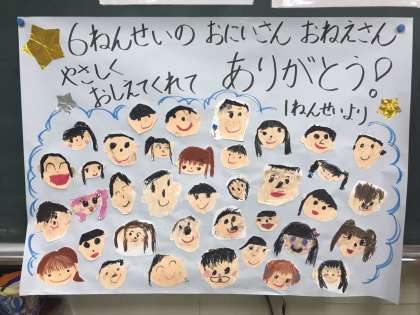 6ねんせいの おにいさん おねえさん
やさしく
おしえてくれて ありがとう!
1ねんせいより